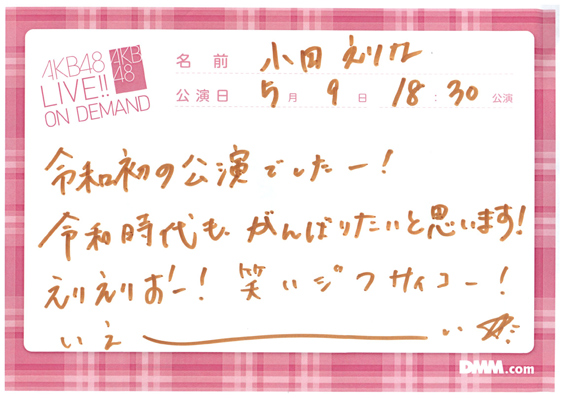 AKB48
LIVE!!
ON DEMAND
AKB
48
名前 小田えりな
公演日 5月9日 18:30 公演
令和初の公演でしたー!
令和時代も、がんばりたいと思います!
えりえりおー! 笑いジワサイコー!
いえ――――い
DMM.com